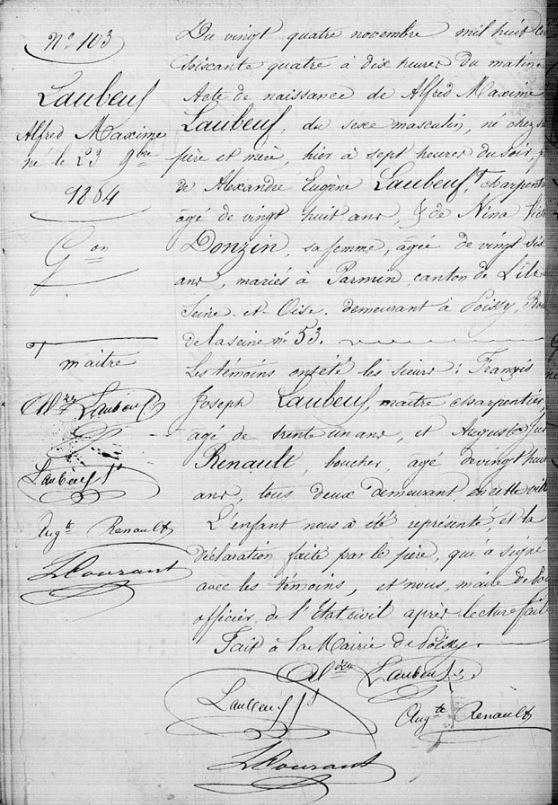 N° 103
Laubeuf
Alfred Maxime
né le 23 9bre
1864
Gon
maitre
Alxdre Laubeuf
Laubeuf
Augte Renault
Du vingt quatre novembre mil huit
soixante quatre à dix heures du matin
Acte de naissance de Alfred Maxime
Laubeuf, du sexe masculin, né chez
père et mère, hier à sept heures du soir,
de Alexandre Eugène Laubeuf, charpent
agé de vingt huit ans, & de Nina
Donzin, sa femme, agée de vingt six
ans, mariés à Parmin, canton de L'Isle
Seine-et-Oise, demeurant à Poissy,
de la seine n° 53.
Les témoins ont été les sieurs: François
Joseph Laubeuf, maitre charpentier
agé de trente un ans, et Auguste
Renault, boucher, agé de vingt huit
ans, tous deux demeurant en cette ville
L'enfant nous a été représenté, et la
déclaration faite par le père, qui a signé
avec les témoins, et nous, maire de
officier de l'Etat civil après lecture fait
Fait à la Mairie de Poissy.
Laubeuf
Laubeuf
Augte Renault